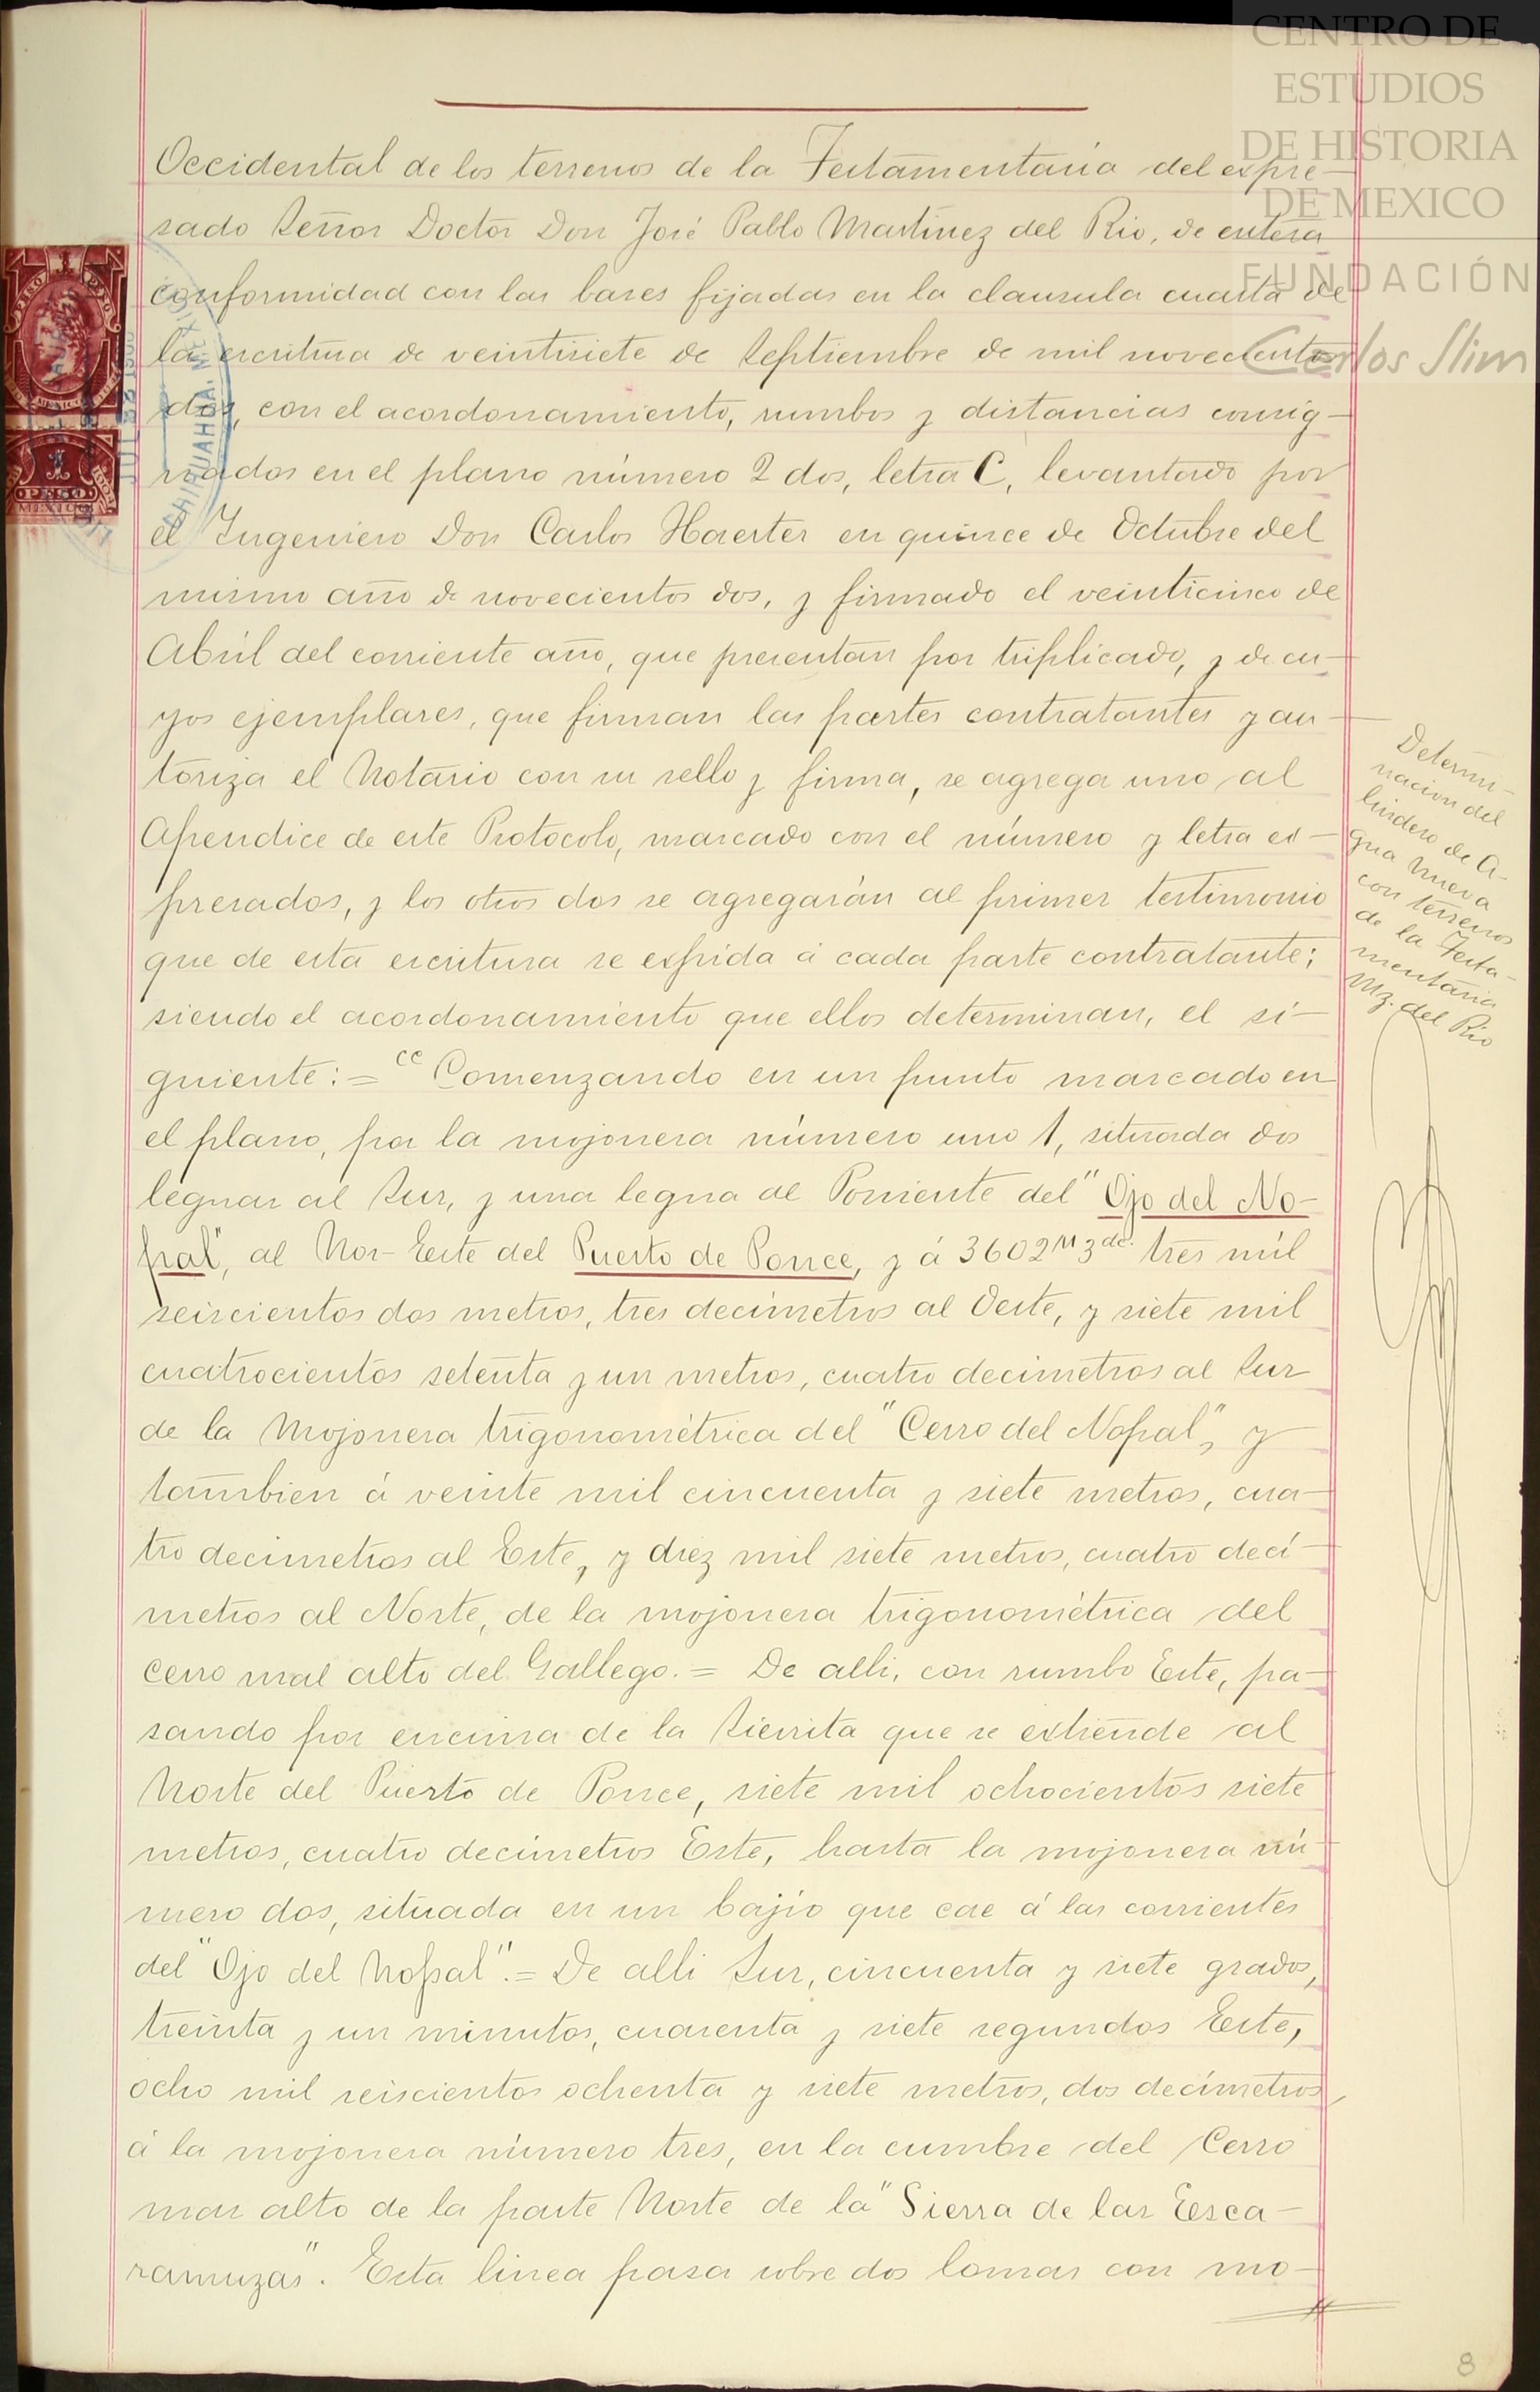 CENTRO DE
ESTUDIOS
DE HISTORIA
DE MEXICO
FUNDACIÓN
Carlos Slim
Occidental de los terrenos de la Testamentaría del expre-
sado Señor Doctor Don José Pablo Martínez del Rio, de entera
conformidad con las bases fijadas en la clausula cuarta de
la escritura de veintisiete de Septiembre de mil novecientos
dos, con el acordonamiento, rumbos y distancias consig-
nados en el plano número 2 dos, letra C, levantado por
el Ingeniero Don Carlos Haerter en quince de Octubre del
mismo año de novecientos dos, y firmado el veinticinco de
Abril del corriente año, que presentan por triplicado, y de cu-
yos ejemplares, que firman las partes contratantes y au-
toriza el Notario con su sello y firma, se agrega uno al
Apendice de este Protocolo, marcado con el número y letra ex-
presados, y los otros dos se agregarán al primer testimonio
que de esta escritura se expida á cada parte contratante;
siendo el acordonamiento que ellos determinan, el si-
guiente: = "Comenzando en un punto marcado en
el plano, por la mojonera número uno 1, situada dos
leguas al Sur, y una legua al Poniente del "Ojo del No-
pal", al Nor-Este del Puerto de Ponce, y á 3602 M 3 dc. tres mil
seiscientos dos metros, tres decímetros al Oeste, y siete mil
cuatrocientos setenta y un metros, cuatro decimetros al Sur
de la Mojonera trigonométrica del "Cerro del Nopal", y
tambien á veinte mil cincuenta y siete metros, cua-
tro decimetros al Este, y diez mil siete metros, cuatro decí-
metros al Norte, de la mojonera trigonométrica del
Cerro mal alto del Gallego. = De alli, con rumbo Este, pa-
sando por encima de la Sierrita que se extiende al
Norte del Puerto de Ponce, siete mil ochocientos siete
metros, cuatro decímetros Este, hasta la mojonera nú-
mero dos, situada en un bajío que cae á las corrientes
del "Ojo del Nopal". = De alli Sur, cincuenta y siete grados,
treinta y un minutos, cuarenta y siete segundos Este,
ocho mil seiscientos ochenta y siete metros, dos decímetros,
á la mojonera número tres, en la cumbre del Cerro
mas alto de la parte Norte de la "Sierra de las Esca-
ramuzas". Esta linea pasa sobre dos lomas con mo-
Determi-
nacion del
lindero de A-
gua Nueva
con terrenos
de la Testa-
mentaria
Mz. del Rio
UN PESO
1
PESO
MEXICO
CHIHUAHUA, MEX
8